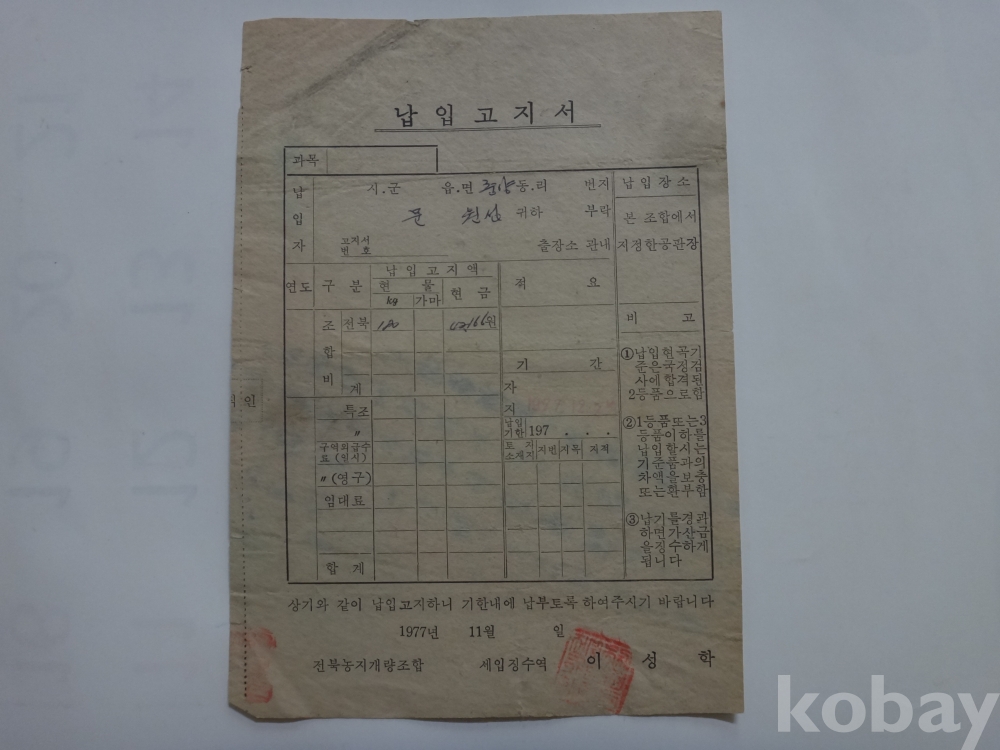 납입고지서
과목
납입자
시.군 읍.면 동.리 번지
귀하 부락
고지서번호 출장소 관내
납입장소
본 조합에서
지정한공관장
연도 구분 납입고지액 적요
현물 현금
kg 가마
조합비 전북 180 원
계
기간
자
지
특조
〃
납입기한 197 . . .
구역외급수료(임시)
토지소재지 지번 지목 지적
〃(영구)
임대료
합계
비고
①납입현곡기
준은국정검
사에합격된
2등품으로함
②1등품또는3
등품이하를
납입할시는
기준품과의
차액을보충
또는환부함
③납기를경과
하면가산금
을징수하게
됩니다
상기와 같이 납입고지하니 기한내에 납부토록 하여주시기 바랍니다
1977년 11월 일
전북농지개량조합 세입징수역 이성학
인
kobay